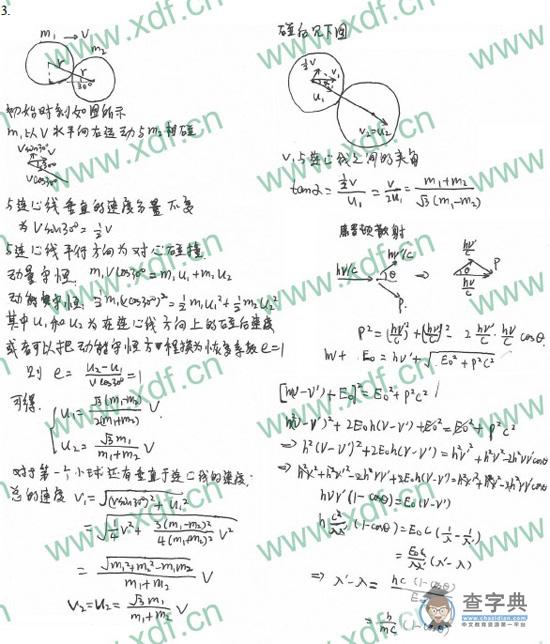 3.
m₁ → V
m₂
r
r
30°
初始时刻如图所示
m₁以V水平向右运动与m₂相碰
Vsin30°
30°
Vcos30°
与连心线垂直的速度分量不变
为 Vsin30° = ½V
与连心线平行方向为对心碰撞
动量守恒. m₁Vcos30° = m₁u₁+m₂u₂
动能守恒. ½m₁(Vcos30°)² = ½m₁u₁²+½m₂u₂²
其中u₁和u₂为在连心线方向上的碰后速度
或者可以把动能守恒方程换为恢复系数e=1
则 e = (u₂-u₁)/(Vcos30°) = 1
可得. { u₁ = √3(m₁-m₂)/(2(m₁+m₂)) V
u₂ = √3m₁/(m₁+m₂) V
对于第一个小球还有垂直于连心线的速度.
总的速度 V₁ = √((Vsin30°)²+u₁²)
= √(¼V²+3(m₁-m₂)²/(4(m₁+m₂)²) V²)
= √(m₁²+m₂²-m₁m₂)/(m₁+m₂) V
V₂=u₂= √3m₁/(m₁+m₂) V
碰后见下图
½V
V₁
u₁
V₂=u₂
V₁与连心线之间的夹角
tanα = ½V/u₁ = V/2u₁ = (m₁+m₂)/(√3(m₁-m₂))
康普顿散射
hν/c
hν'/c
θ
P
⇒
hν'/c
θ
hν/c
P
P² = (hν/c)²+(hν'/c)² - 2 hν/c · hν'/c cosθ
hν + E₀ = hν' + √(E₀²+P²c²)
[h(ν-ν')+E₀]² = E₀²+P²c²
h²(ν-ν')²+2E₀h(ν-ν')+E₀² = E₀²+P²c²
⇒ h²(ν-ν')²+2E₀h(ν-ν') = h²ν²+h²ν'²-2h²νν'cosθ
⇒ h²ν²+h²ν'²-2h²νν'+2E₀h(ν-ν') = h²ν²+h²ν'²-2h²νν'cosθ
hνν'(1-cosθ) = E₀(ν-ν')
h c²/λλ' (1-cosθ) = E₀c(1/λ - 1/λ')
= E₀c/λλ' (λ'-λ)
⇒ λ'-λ = hc(1-cosθ)/E₀
= h/mc (1-cosθ)
www.xdf.cn
www.xdf.cn
www.xdf.cn
www.xdf.cn
www.xdf.cn
www.xdf.cn
www.xdf.cn
www.xdf.cn
查字典
中文教育资源第一平台